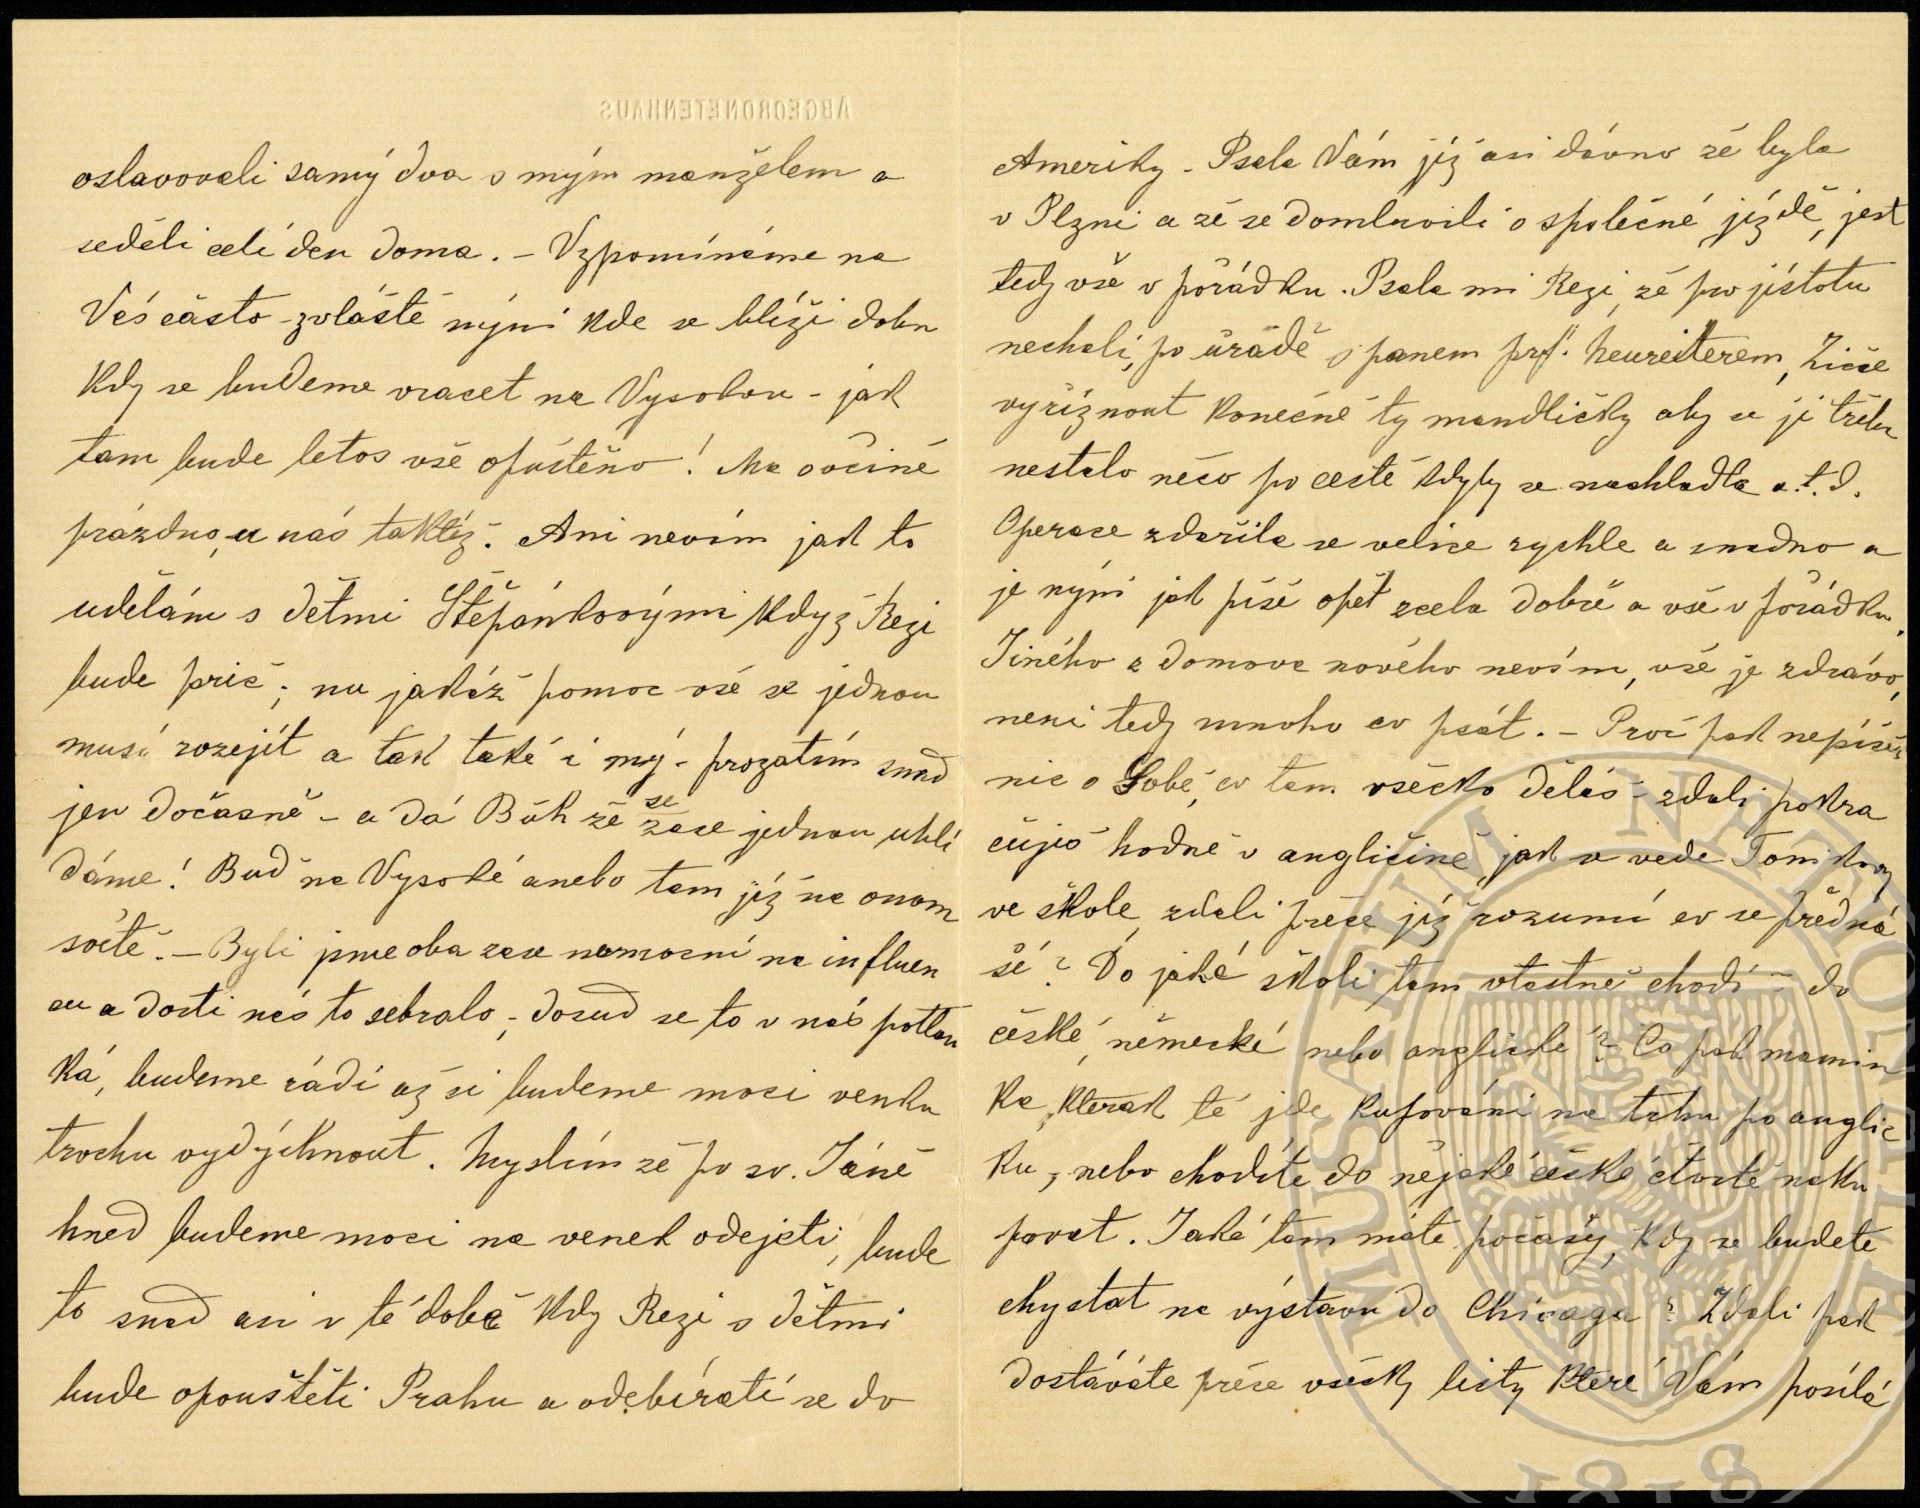 ABGEORDNETENHAUS
oslavovali samý dva s mým manželem a
seděli celí den doma. – Vzpomínáme na
Vás často zvláště nýni kde se blíži doba
kdy se budeme vracet na Vysokou – jak
tam bude letos vše opuštěno! Na ovčině
prázdno, u nás taktéž. Ani nevím jak to
udělám s dětmi Štěpánkovými když Rezi
bude prič; nu jakáž pomoc vše se jednou
musí rozejít a tak také i mý – prozatím snad
jen dočasně – a dá Bůh že se zase jednou uhlí
dáme! Buď na Vysoké anebo tam jíž na onom
světě. – Byli jsme oba zase nemocní na influen
cu a dosti nás to sebralo, – dosud se to v nás potlou
ká, budeme rádi až si budeme moci venku
trochu vydýchnout. Myslím že po sv. Jáně
hned budeme moci na venek odejeti, bude
to snad asi v té době kdy Rezi s dětmi
bude opouštěti Prahu a odebírati se do
Ameriky – Psala Vám jíž asi dávno že byla
v Plzni a že se domluvili o společné jízdě, jest
tedy vše v pořádku. Psala mi Rezi, že pro jístotu
nechali, po úřádě s panem prof. Neureitterem, Zince
vyříznout konečně ty mandličky aby se jí třeba
nestalo něco po cestě kdyby se nachladla a.t.d.
Operace zdařila se velice rychle a snadno a
je nýni jak píše opět zcela dobře a vše v pořádku.
Jiného z domova nového nevím, vše je zdrávo,
neni tedy mnoho co psát. – Proč pak nepíšeš
nic o Sobě, co tam všecko děláš – zdali pokra
čuješ hodně v angličině, jak se vede Toníkovy
ve škole, zdali přece jíž rozumí co se předná
ší? Do jaké školi tam vlastně chodí – do
české, německé nebo anglické? Co pak mamin
ka, kterak té jde kupování na trhu po anglic
ku, nebo chodíte do nějaké české čtvrtě naku
povat. Jaké tam máte počásy, kdy se budete
chystat na výstavu do Chicaga? Zdali pak
dostáváte přece všecky listy které Vám posílá